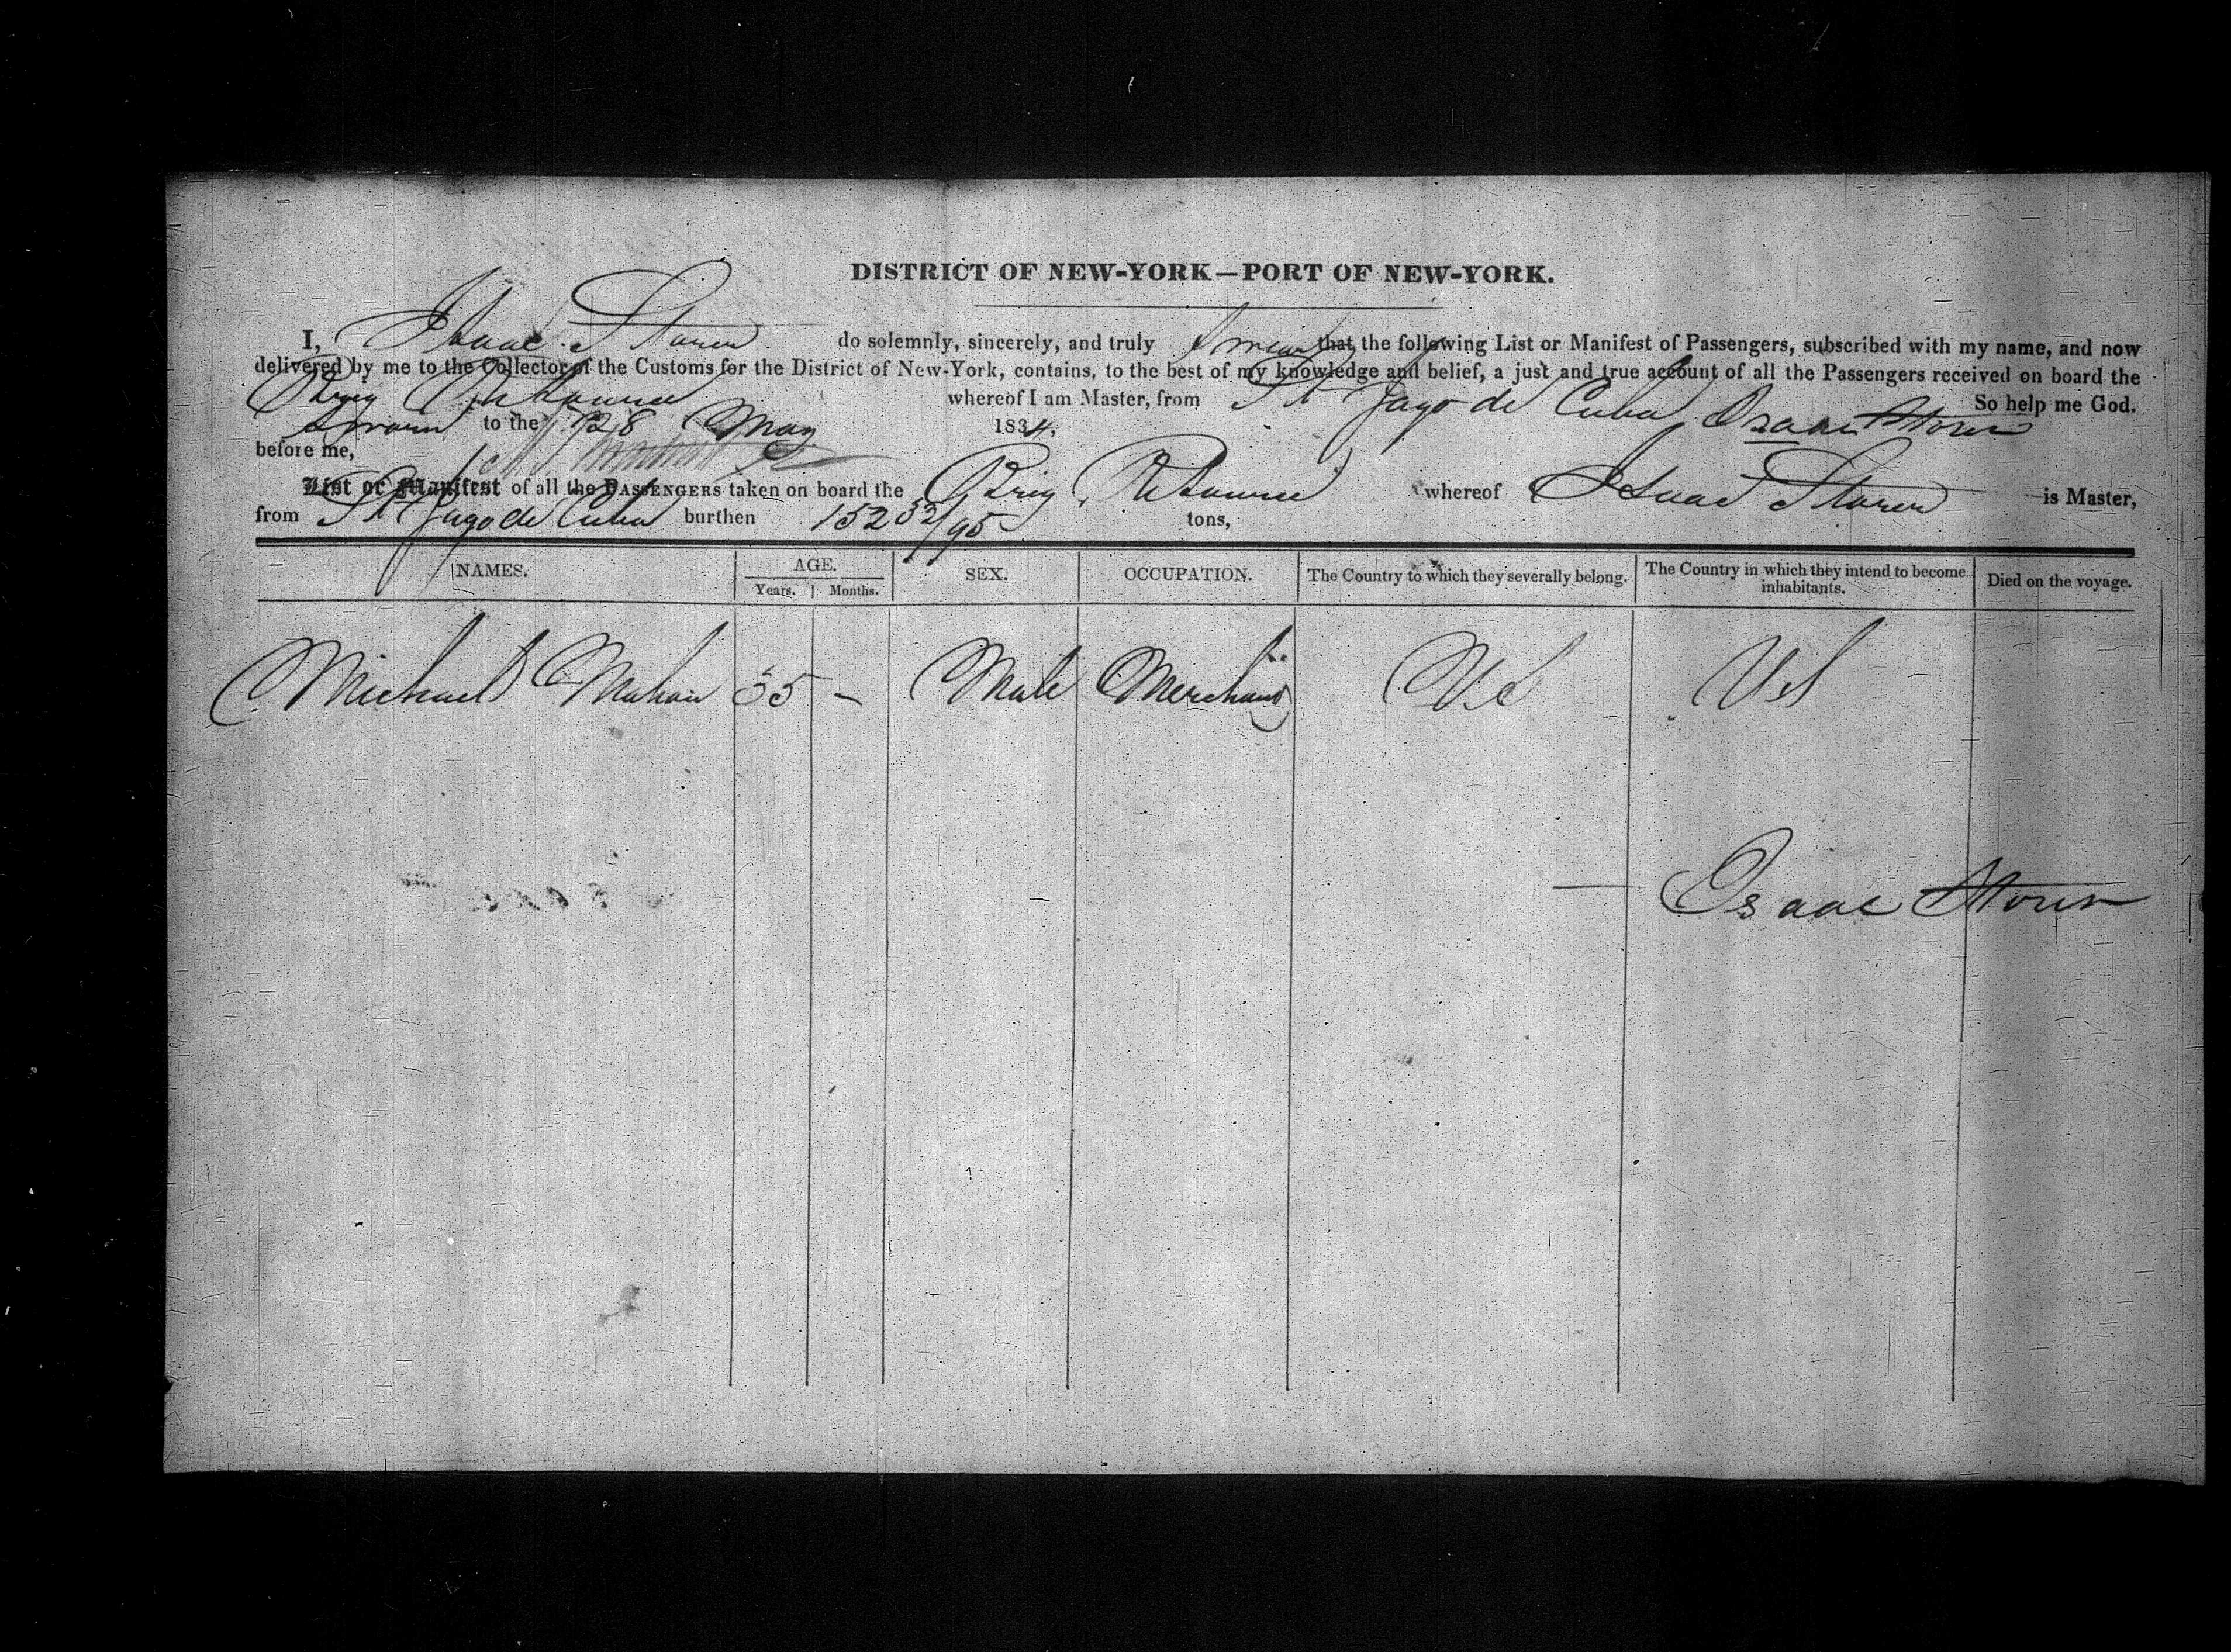 DISTRICT OF NEW-YORK—PORT OF NEW-YORK.
I, Isaac Storer do solemnly, sincerely, and truly Swear that the following List or Manifest of Passengers, subscribed with my name, and now
delivered by me to the Collector of the Customs for the District of New-York, contains, to the best of my knowledge and belief, a just and true account of all the Passengers received on board the
Brig whereof I am Master, from St Jago de Cuba So help me God.
Sworn to the 28 May 1834, Isaac Storer
before me,
List or Manifest of all the PASSENGERS taken on board the Brig whereof Isaac Storer is Master,
from St Jago de Cuba burthen 152 52/95 tons,
NAMES. AGE. SEX. OCCUPATION. The Country to which they severally belong. The Country in which they intend to become inhabitants. Died on the voyage.
Years. Months.
Michael Mahan 35 – Male Merchant US US
Isaac Storer